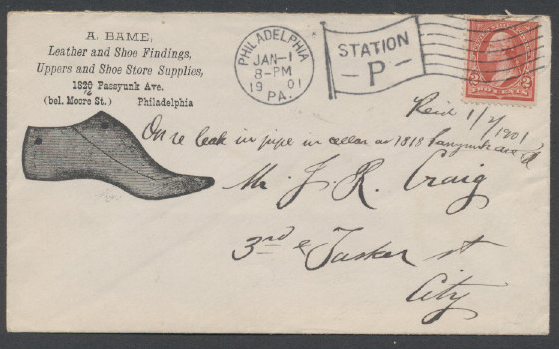 A. BAME,
Leather and Shoe Findings,
Uppers and Shoe Store Supplies,
1820 Passyunk Ave.
16
(bel. Moore St.) Philadelphia
PHILADELPHIA
JAN-1
8-PM
19 01
PA.
STATION
P
2 TWO CENTS 2
Recd 1/2/1901
On re leak in pipe in cellar at 1818 Passyunk ave
Mr J. R. Craig
3rd & Tasker st
City